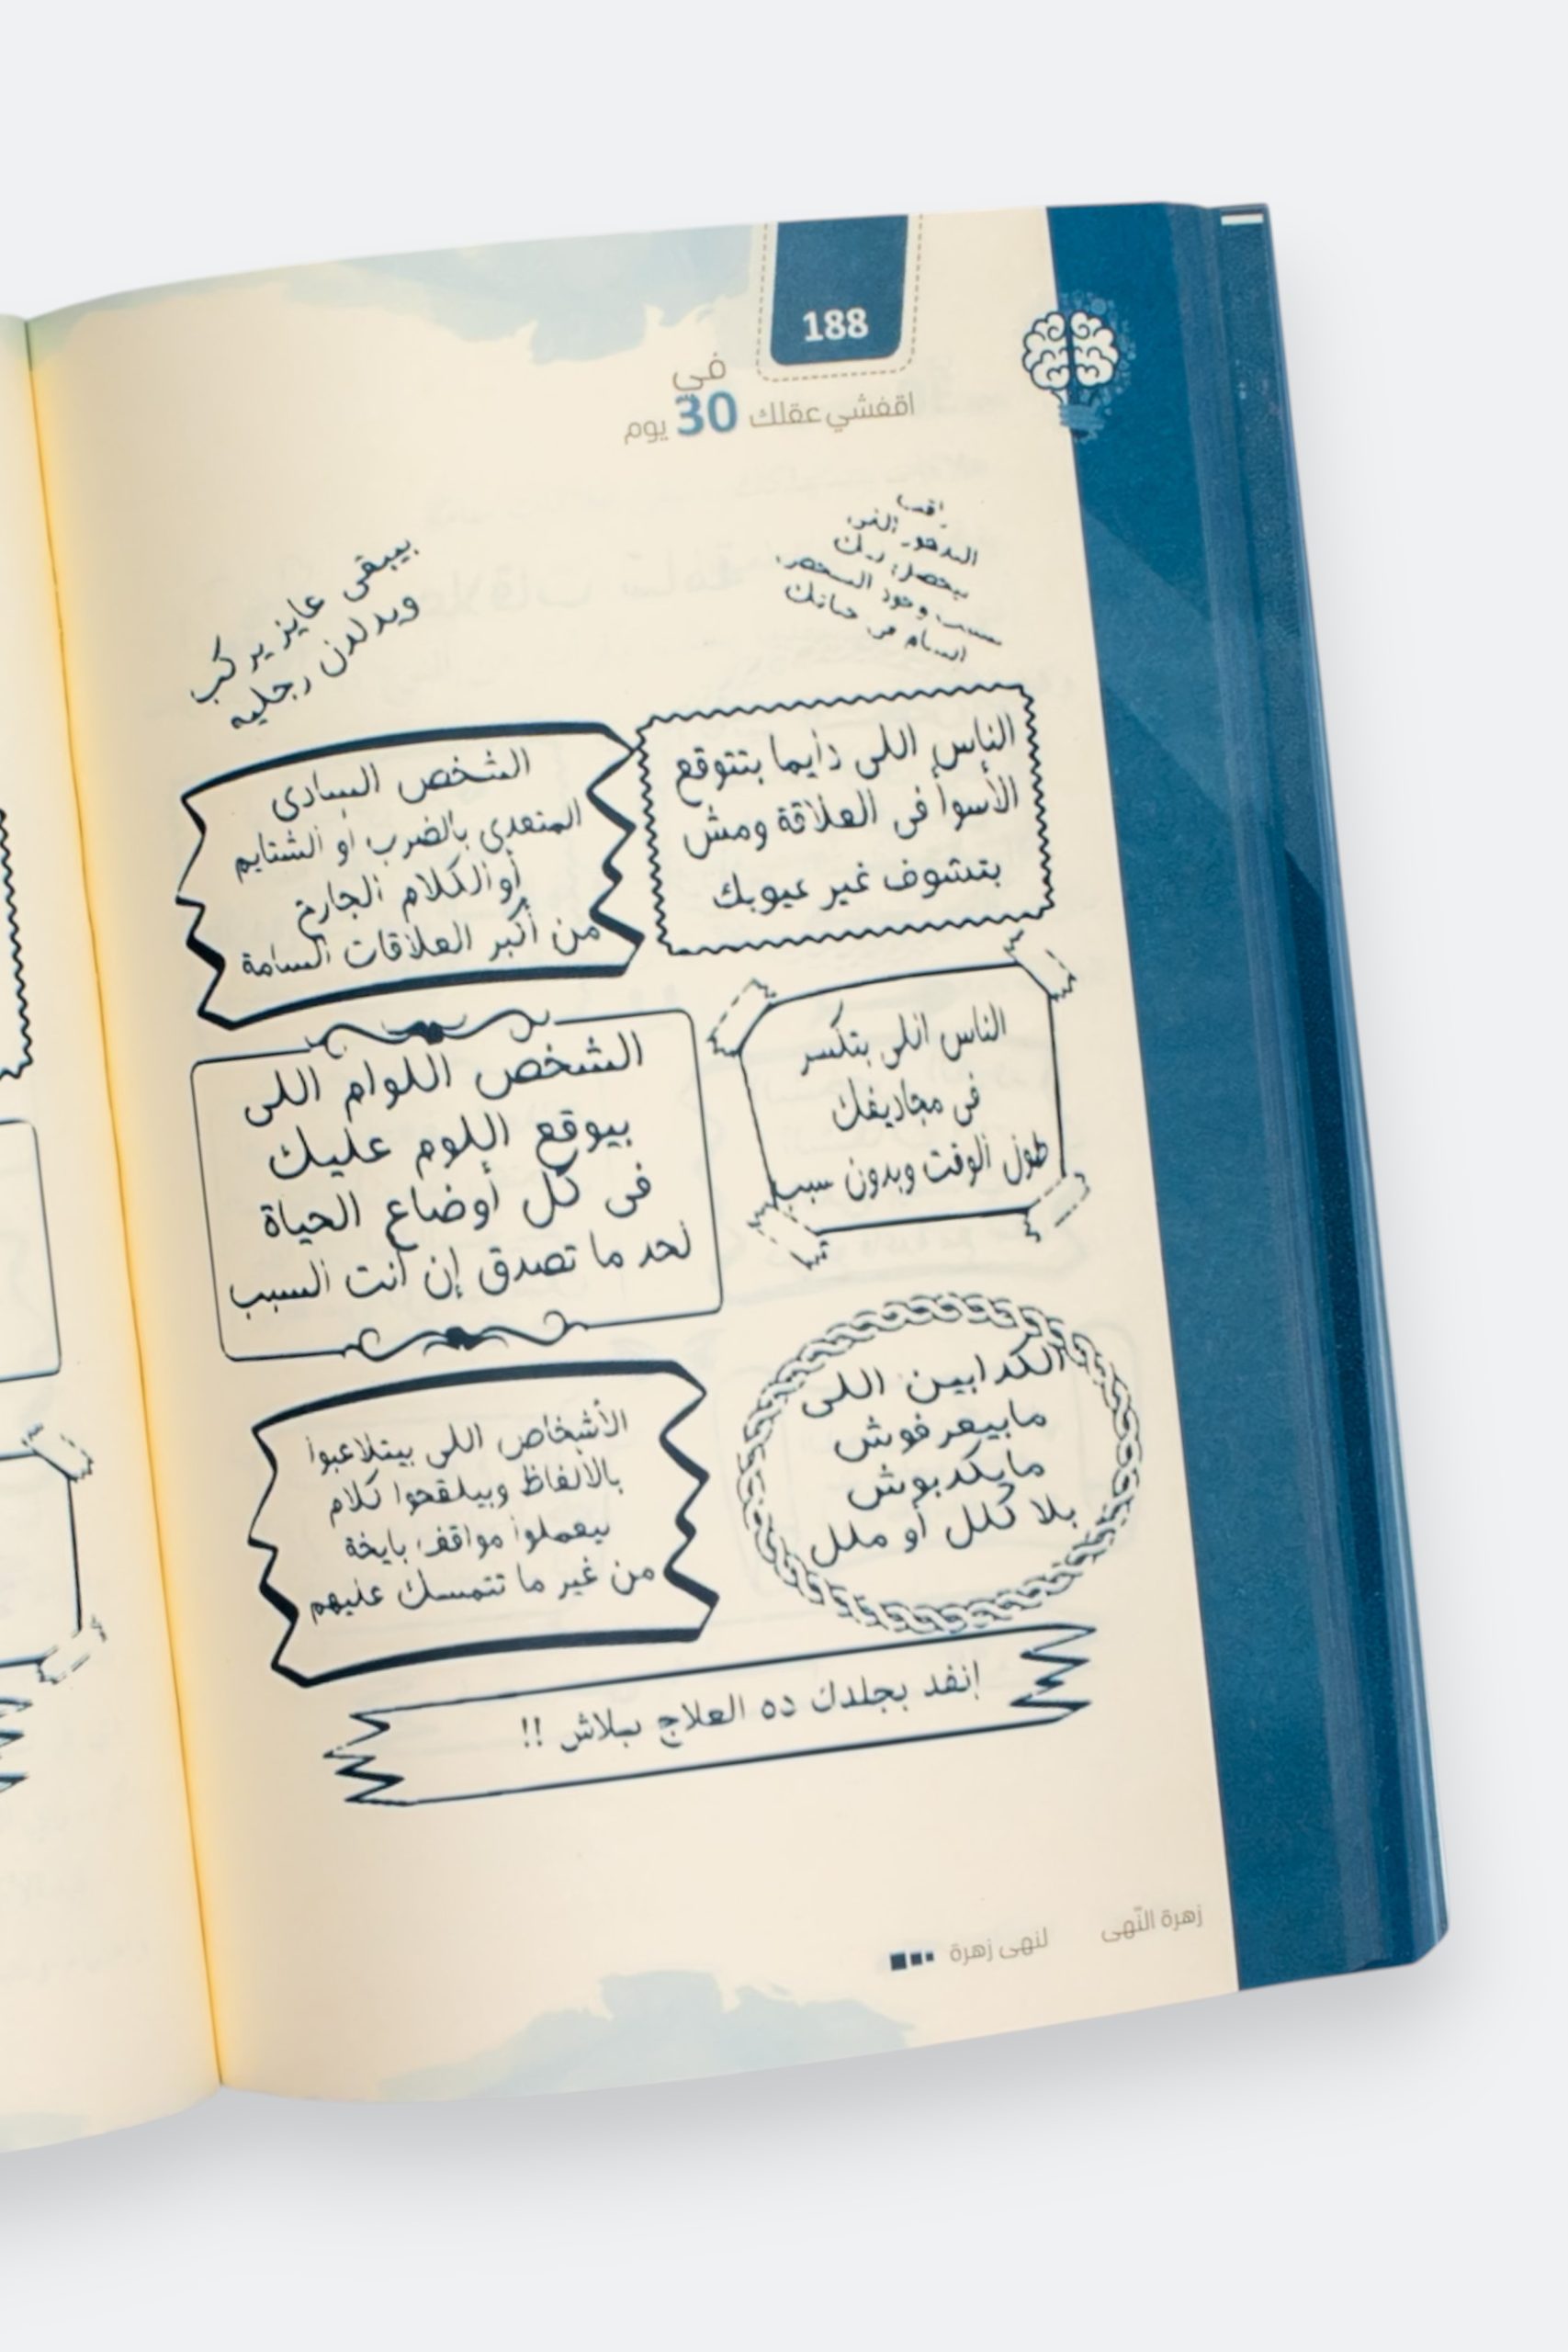 188
اقفشي عقلك في 30 يوم
التدهور النفسي
بيحصل لك
بسبب وجود الشخص
السام في حياتك
بيبقى عايز يركب
ويدلدل رجليه
الناس اللى دايما بتتوقع
الأسوأ فى العلاقة ومش
بتشوف غير عيوبك
الشخص السادى
المتعدى بالضرب او الشتايم
أو الكلام الجارح
من أكبر العلاقات السامة
الناس اللى بتكسر
فى مجاديفك
طول الوقت وبدون سبب
الشخص اللوام اللى
بيوقع اللوم عليك
فى كل أوضاع الحياة
لحد ما تصدق إن أنت السبب
الكدابين اللى
مابيعرفوش
مايكدبوش
بلا كلل أو ملل
الأشخاص اللى بيتلاعبوا
بالألفاظ وبيلقحوا كلام
بيعملوا مواقف بايخة
من غير ما تتمسك عليهم
إنفد بجلدك ده العلاج ببلاش !!
زهرة النّهى لنهى زهرة